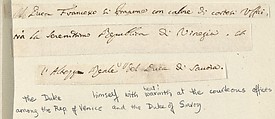 Duca Francesco s'impone con calore di cortesi Uffici,
con la Serenissima Republica di Venezia, et
l'Altezza Reale del Duca di Savoia.
the Duke himself with heat
warmth at the courteous offices
among the Rep. of Venice and the Duke of Savoy